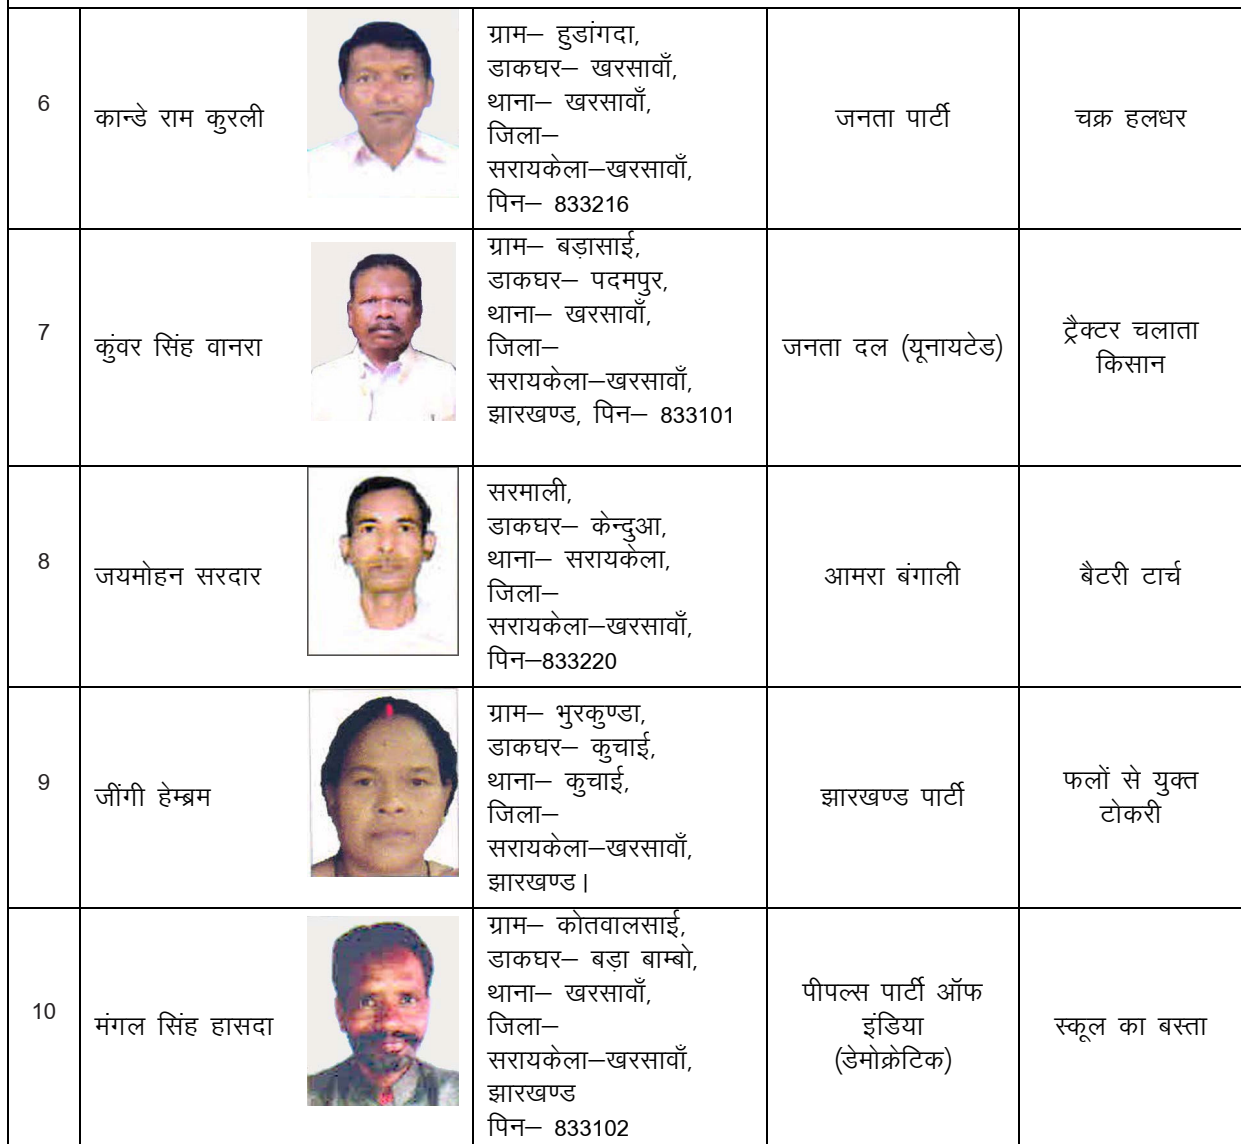 6
कान्डे राम कुरली
ग्राम– हुडांगदा,
डाकघर– खरसावाँ,
थाना– खरसावाँ,
जिला–
सरायकेला–खरसावाँ,
पिन– 833216
जनता पार्टी
चक्र हलधर
7
कुंवर सिंह वानरा
ग्राम– बड़ासाई,
डाकघर– पदमपुर,
थाना– खरसावाँ,
जिला–
सरायकेला–खरसावाँ,
झारखण्ड, पिन– 833101
जनता दल (यूनायटेड)
ट्रैक्टर चलाता
किसान
8
जयमोहन सरदार
सरमाली,
डाकघर– केन्दुआ,
थाना– सरायकेला,
जिला–
सरायकेला–खरसावाँ,
पिन–833220
आमरा बंगाली
बैटरी टार्च
9
जींगी हेम्ब्रम
ग्राम– भुरकुण्डा,
डाकघर– कुचाई,
थाना– कुचाई,
जिला–
सरायकेला–खरसावाँ,
झारखण्ड।
झारखण्ड पार्टी
फलों से युक्त
टोकरी
10
मंगल सिंह हासदा
ग्राम– कोतवालसाई,
डाकघर– बड़ा बाम्बो,
थाना– खरसावाँ,
जिला–
सरायकेला–खरसावाँ,
झारखण्ड
पिन– 833102
पीपल्स पार्टी ऑफ
इंडिया
(डेमोक्रेटिक)
स्कूल का बस्ता